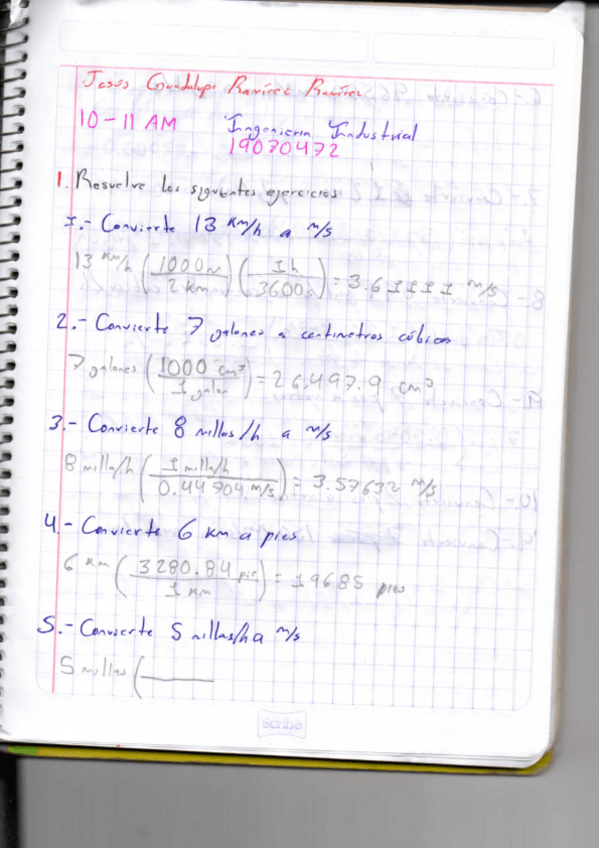 Jesus Guadalupe Ramirez Ramirez
10-11 AM Ingenieria Industrial
19070472
1. Resuelve los siguientes ejercicios
1.- Convierte 13 Km/h a m/s
13 Km/h (1000 m / 1 km) (1 h / 3600 s) = 3.61111 m/s
2.- Convierte 7 galones a centimetros cúbicos
7 galones (1000 cm³ / 1 galon) = 26,497.9 cm³
3.- Convierte 8 millas/h a m/s
8 milla/h (1 milla/h / 0.44704 m/s) = 3.57632 m/s
4.- Convierte 6 km a pies
6 km (3280.84 pie / 1 km) = 19685 pies
5.- Convierte 5 millas/h a m/s
5 millas (
scribe